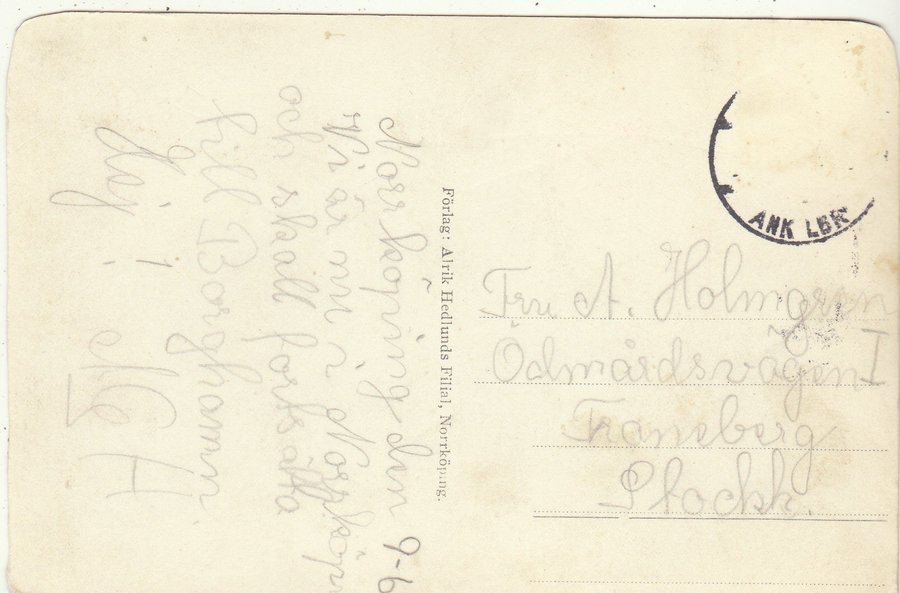 Norrköping den 9-6
Vi är nu i Norrköpi
och skall fortsätta
till Borghamn
Hej!
Förlag: Alrik Hedlunds Filial, Norrköping.
ANK LBR
Fru A. Holmgren
Ödmårdsvägen I
Traneberg
Stockh.